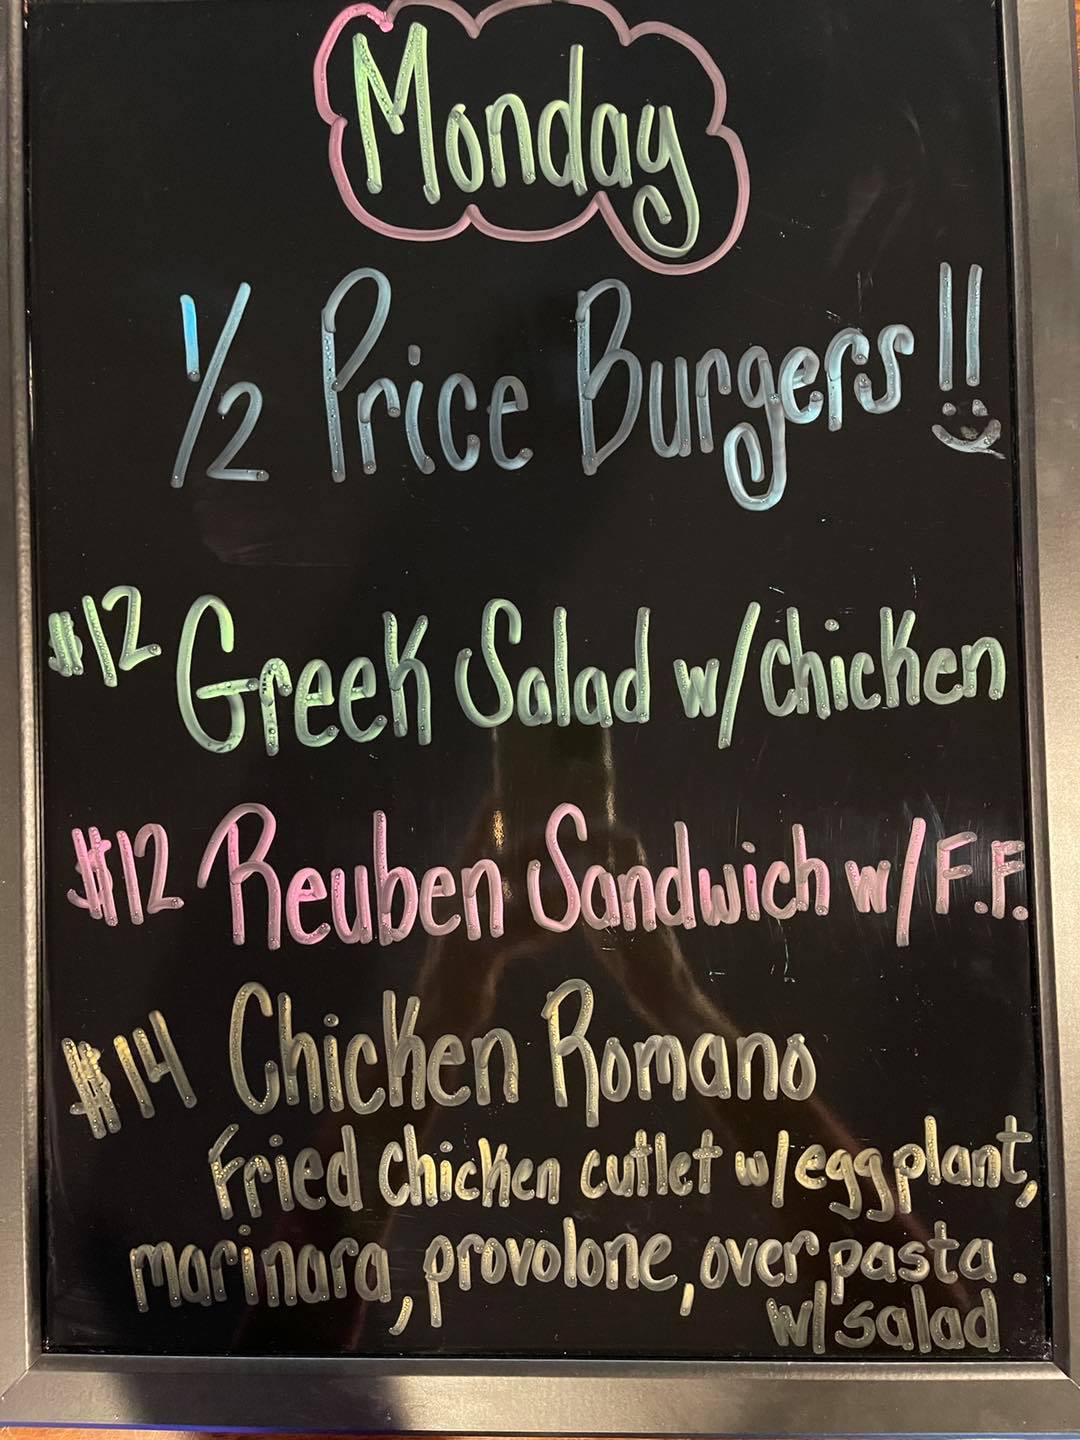 Monday
1/2 Price Burgers!!
$12 Greek Salad w/chicken
$12 Reuben Sandwich w/F.F.
$14 Chicken Romano
Fried Chicken cutlet w/eggplant,
marinara, provolone, over pasta.
w/salad